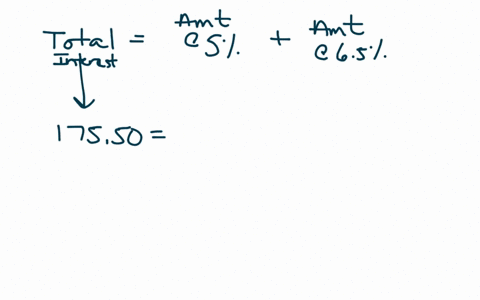 Total = Amt @ 5% + Amt @ 6.5%
Interest
175.50 =